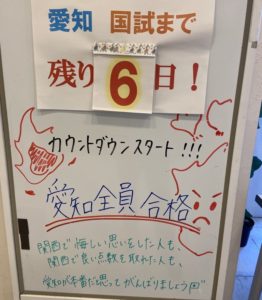 愛知 国試まで
残り6日!
カウントダウンスタート!!!
愛知全員合格
関西で悔しい思いをした人も、
関西で良い点数を取れた人も、
愛知が本番だと思ってがんばりましょう